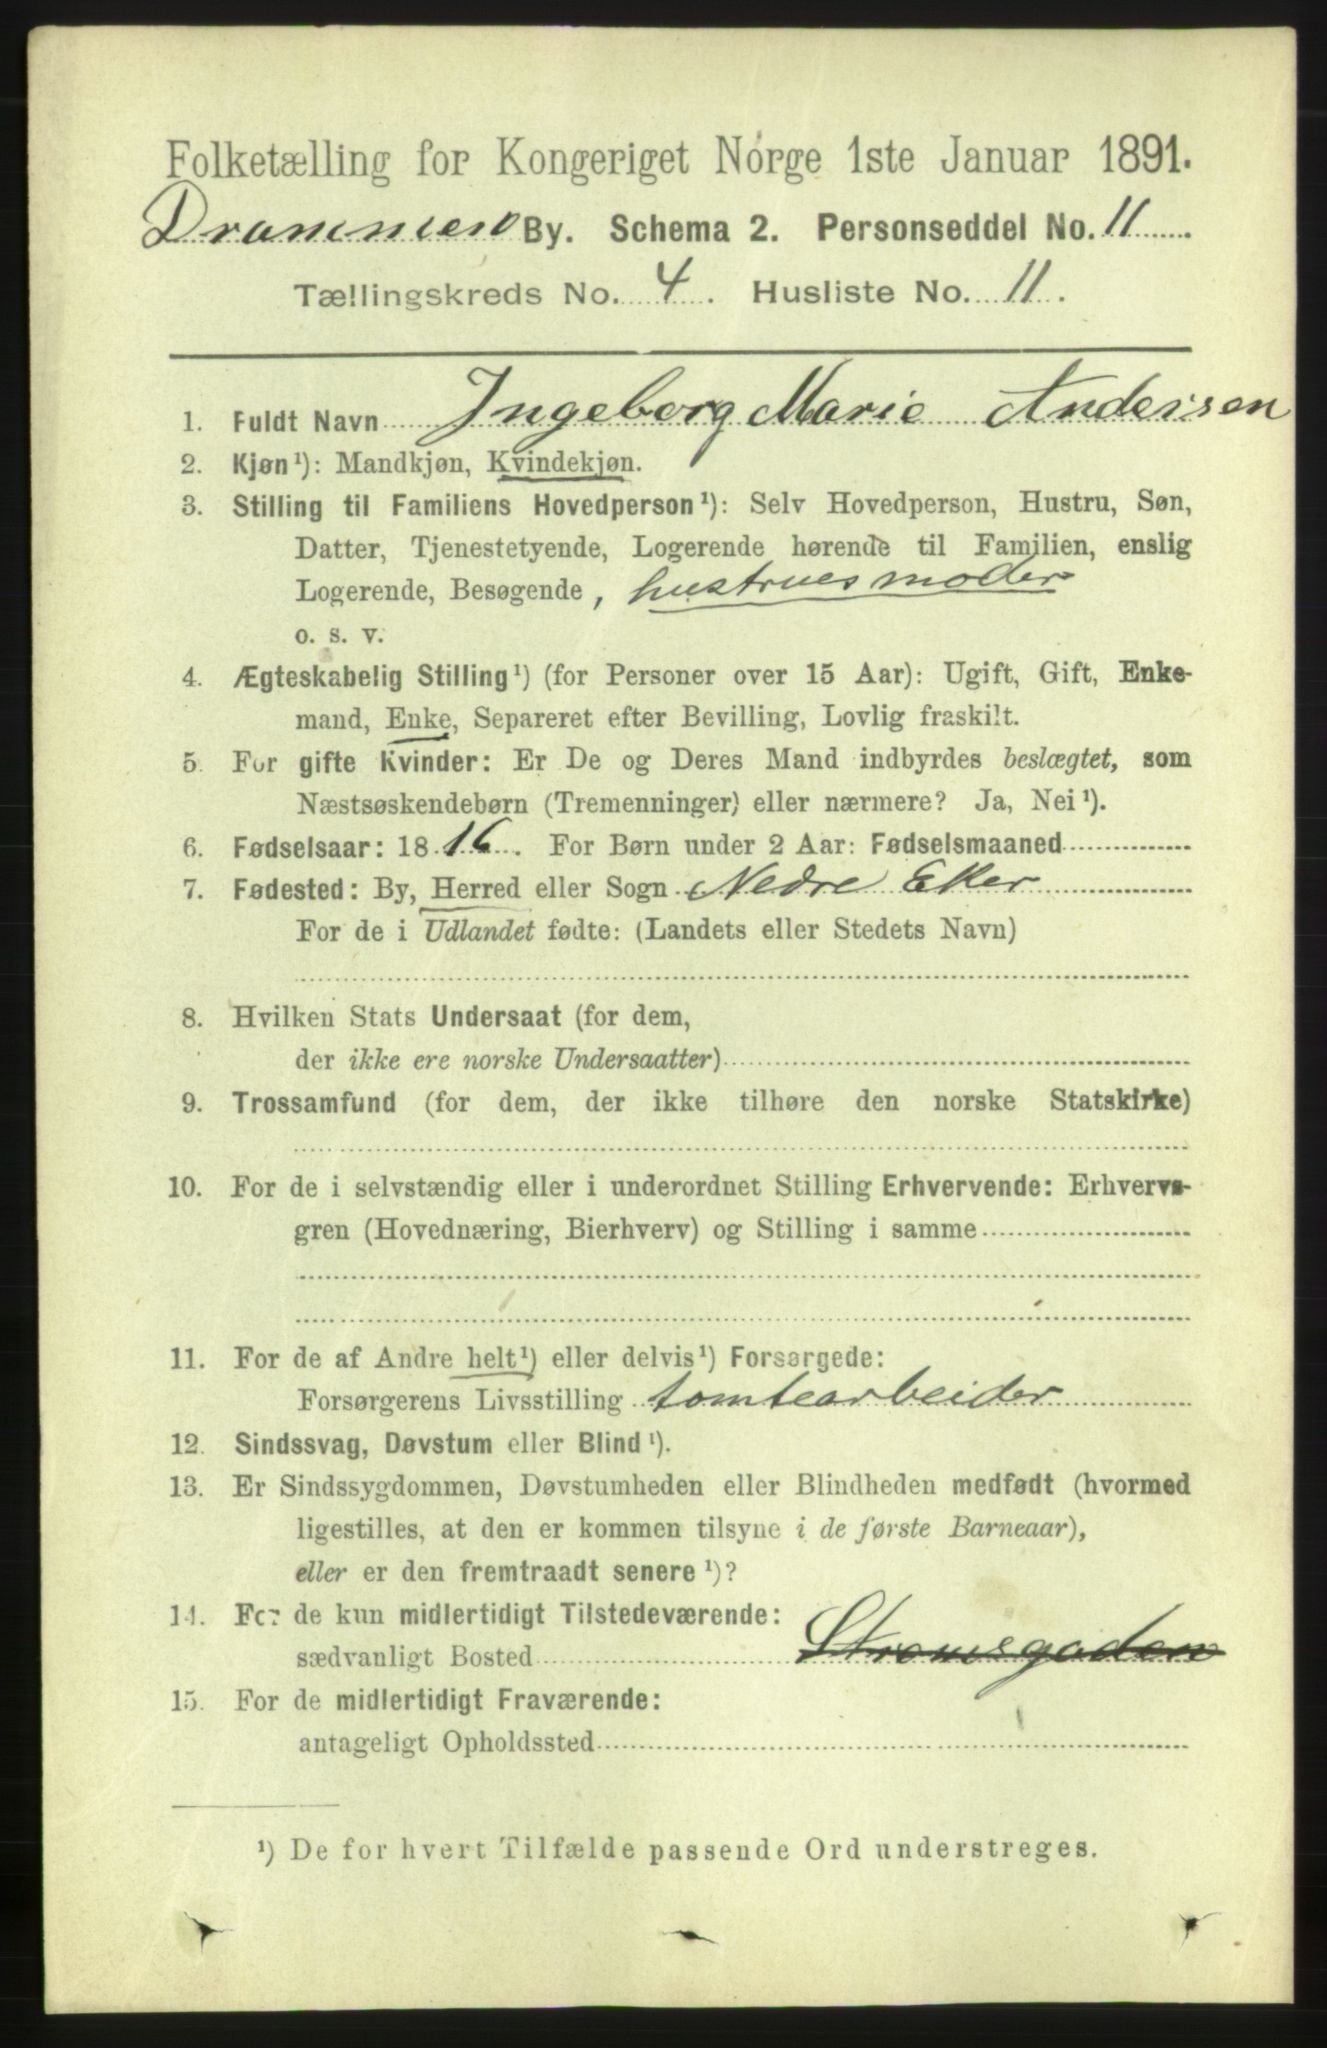 Folketælling for Kongeriget Norge 1ste Januar 1891.
Drammen By. Schema 2. Personseddel No. 11
Tællingskreds No. 4. Husliste No. 11.
1. Fuldt Navn Ingeborg Marie Andersen
2. Kjøn¹): Mandkjøn, Kvindekjøn.
3. Stilling til Familiens Hovedperson¹): Selv Hovedperson, Hustru, Søn,
Datter, Tjenestetyende, Logerende hørende til Familien, enslig
Logerende, Besøgende, hustrues moder
o. s. v.
4. Ægteskabelig Stilling¹) (for Personer over 15 Aar): Ugift, Gift, Enke-
mand, Enke, Separeret efter Bevilling, Lovlig fraskilt.
5. For gifte Kvinder: Er De og Deres Mand indbyrdes beslægtet, som
Næstsøskendebørn (Tremenninger) eller nærmere? Ja, Nei¹).
6. Fødselsaar: 1816. For Børn under 2 Aar: Fødselsmaaned
7. Fødested: By, Herred eller Sogn Nedre Eker
For de i Udlandet fødte: (Landets eller Stedets Navn)
8. Hvilken Stats Undersaat (for dem,
der ikke ere norske Undersaatter)
9. Trossamfund (for dem, der ikke tilhøre den norske Statskirke)
10. For de i selvstændig eller i underordnet Stilling Erhvervende: Erhvervs-
gren (Hovednæring, Bierhverv) og Stilling i samme
11. For de af Andre helt¹) eller delvis¹) Forsørgede:
Forsørgerens Livsstilling tomtearbeider
12. Sindssvag, Døvstum eller Blind¹).
13. Er Sindssygdommen, Døvstumheden eller Blindheden medfødt (hvormed
ligestilles, at den er kommen tilsyne i de første Barneaar),
eller er den fremtraadt senere¹)?
14. For de kun midlertidigt Tilstedeværende:
sædvanligt Bosted Strømsgaden
15. For de midlertidigt Fraværende:
antageligt Opholdssted
¹) De for hvert Tilfælde passende Ord understreges.